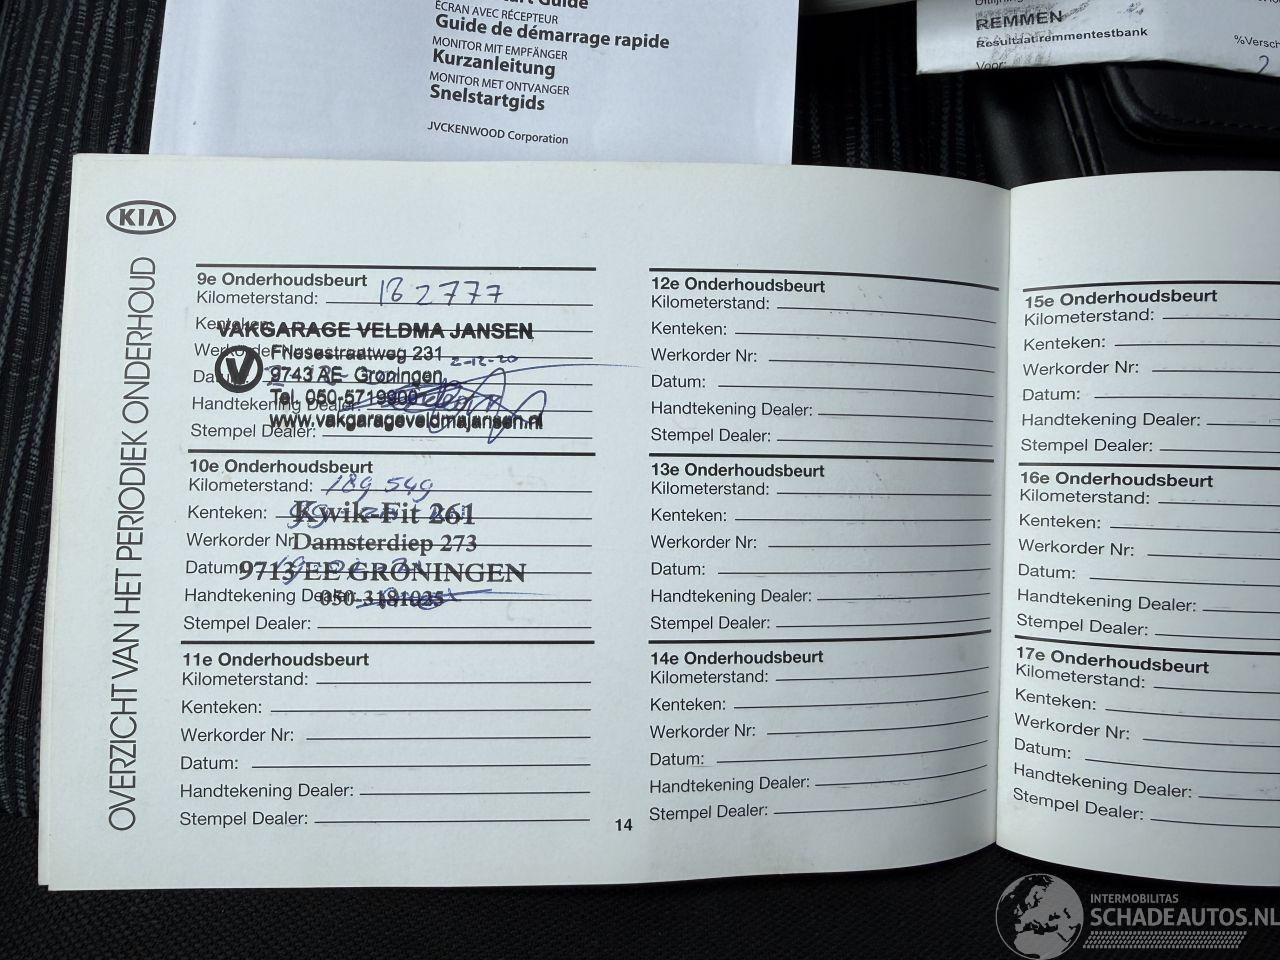 Guide
ÉCRAN AVEC RÉCEPTEUR
Guide de démarrage rapide
MONITOR MIT EMPFÄNGER
Kurzanleitung
MONITOR MET ONTVANGER
Snelstartgids
JVCKENWOOD Corporation
REMMEN
Resultaat remmentestbank
%Versch
Voor:
KIA
OVERZICHT VAN HET PERIODIEK ONDERHOUD
9e Onderhoudsbeurt
Kilometerstand: 182777
Kenteken:
VAKGARAGE VELDMA JANSEN
Werkorder Nr:
Friesestraatweg 231
2-12-20
Datum:
9743 AE Groningen
Handtekening Dealer:
Tel. 050-5719900
www.vakgarageveldmajansen.nl
Stempel Dealer:
10e Onderhoudsbeurt
Kilometerstand: 189 549
Kenteken:
Kwik-Fit 261
Werkorder Nr:
Damsterdiep 273
Datum:
9713 EE GRONINGEN
Handtekening Dealer:
050-3181025
Stempel Dealer:
11e Onderhoudsbeurt
Kilometerstand:
Kenteken:
Werkorder Nr:
Datum:
Handtekening Dealer:
Stempel Dealer:
14
12e Onderhoudsbeurt
Kilometerstand:
Kenteken:
Werkorder Nr:
Datum:
Handtekening Dealer:
Stempel Dealer:
13e Onderhoudsbeurt
Kilometerstand:
Kenteken:
Werkorder Nr:
Datum:
Handtekening Dealer:
Stempel Dealer:
14e Onderhoudsbeurt
Kilometerstand:
Kenteken:
Werkorder Nr:
Datum:
Handtekening Dealer:
Stempel Dealer:
15e Onderhoudsbeurt
Kilometerstand:
Kenteken:
Werkorder Nr:
Datum:
Handtekening Dealer:
Stempel Dealer:
16e Onderhoudsbeurt
Kilometerstand:
Kenteken:
Werkorder Nr:
Datum:
Handtekening Dealer:
Stempel Dealer:
17e Onderhoudsbeurt
Kilometerstand:
Kenteken:
Werkorder Nr:
Datum:
Handtekening Dealer:
Stempel Dealer:
INTERMOBILITAS
SCHADEAUTOS.NL